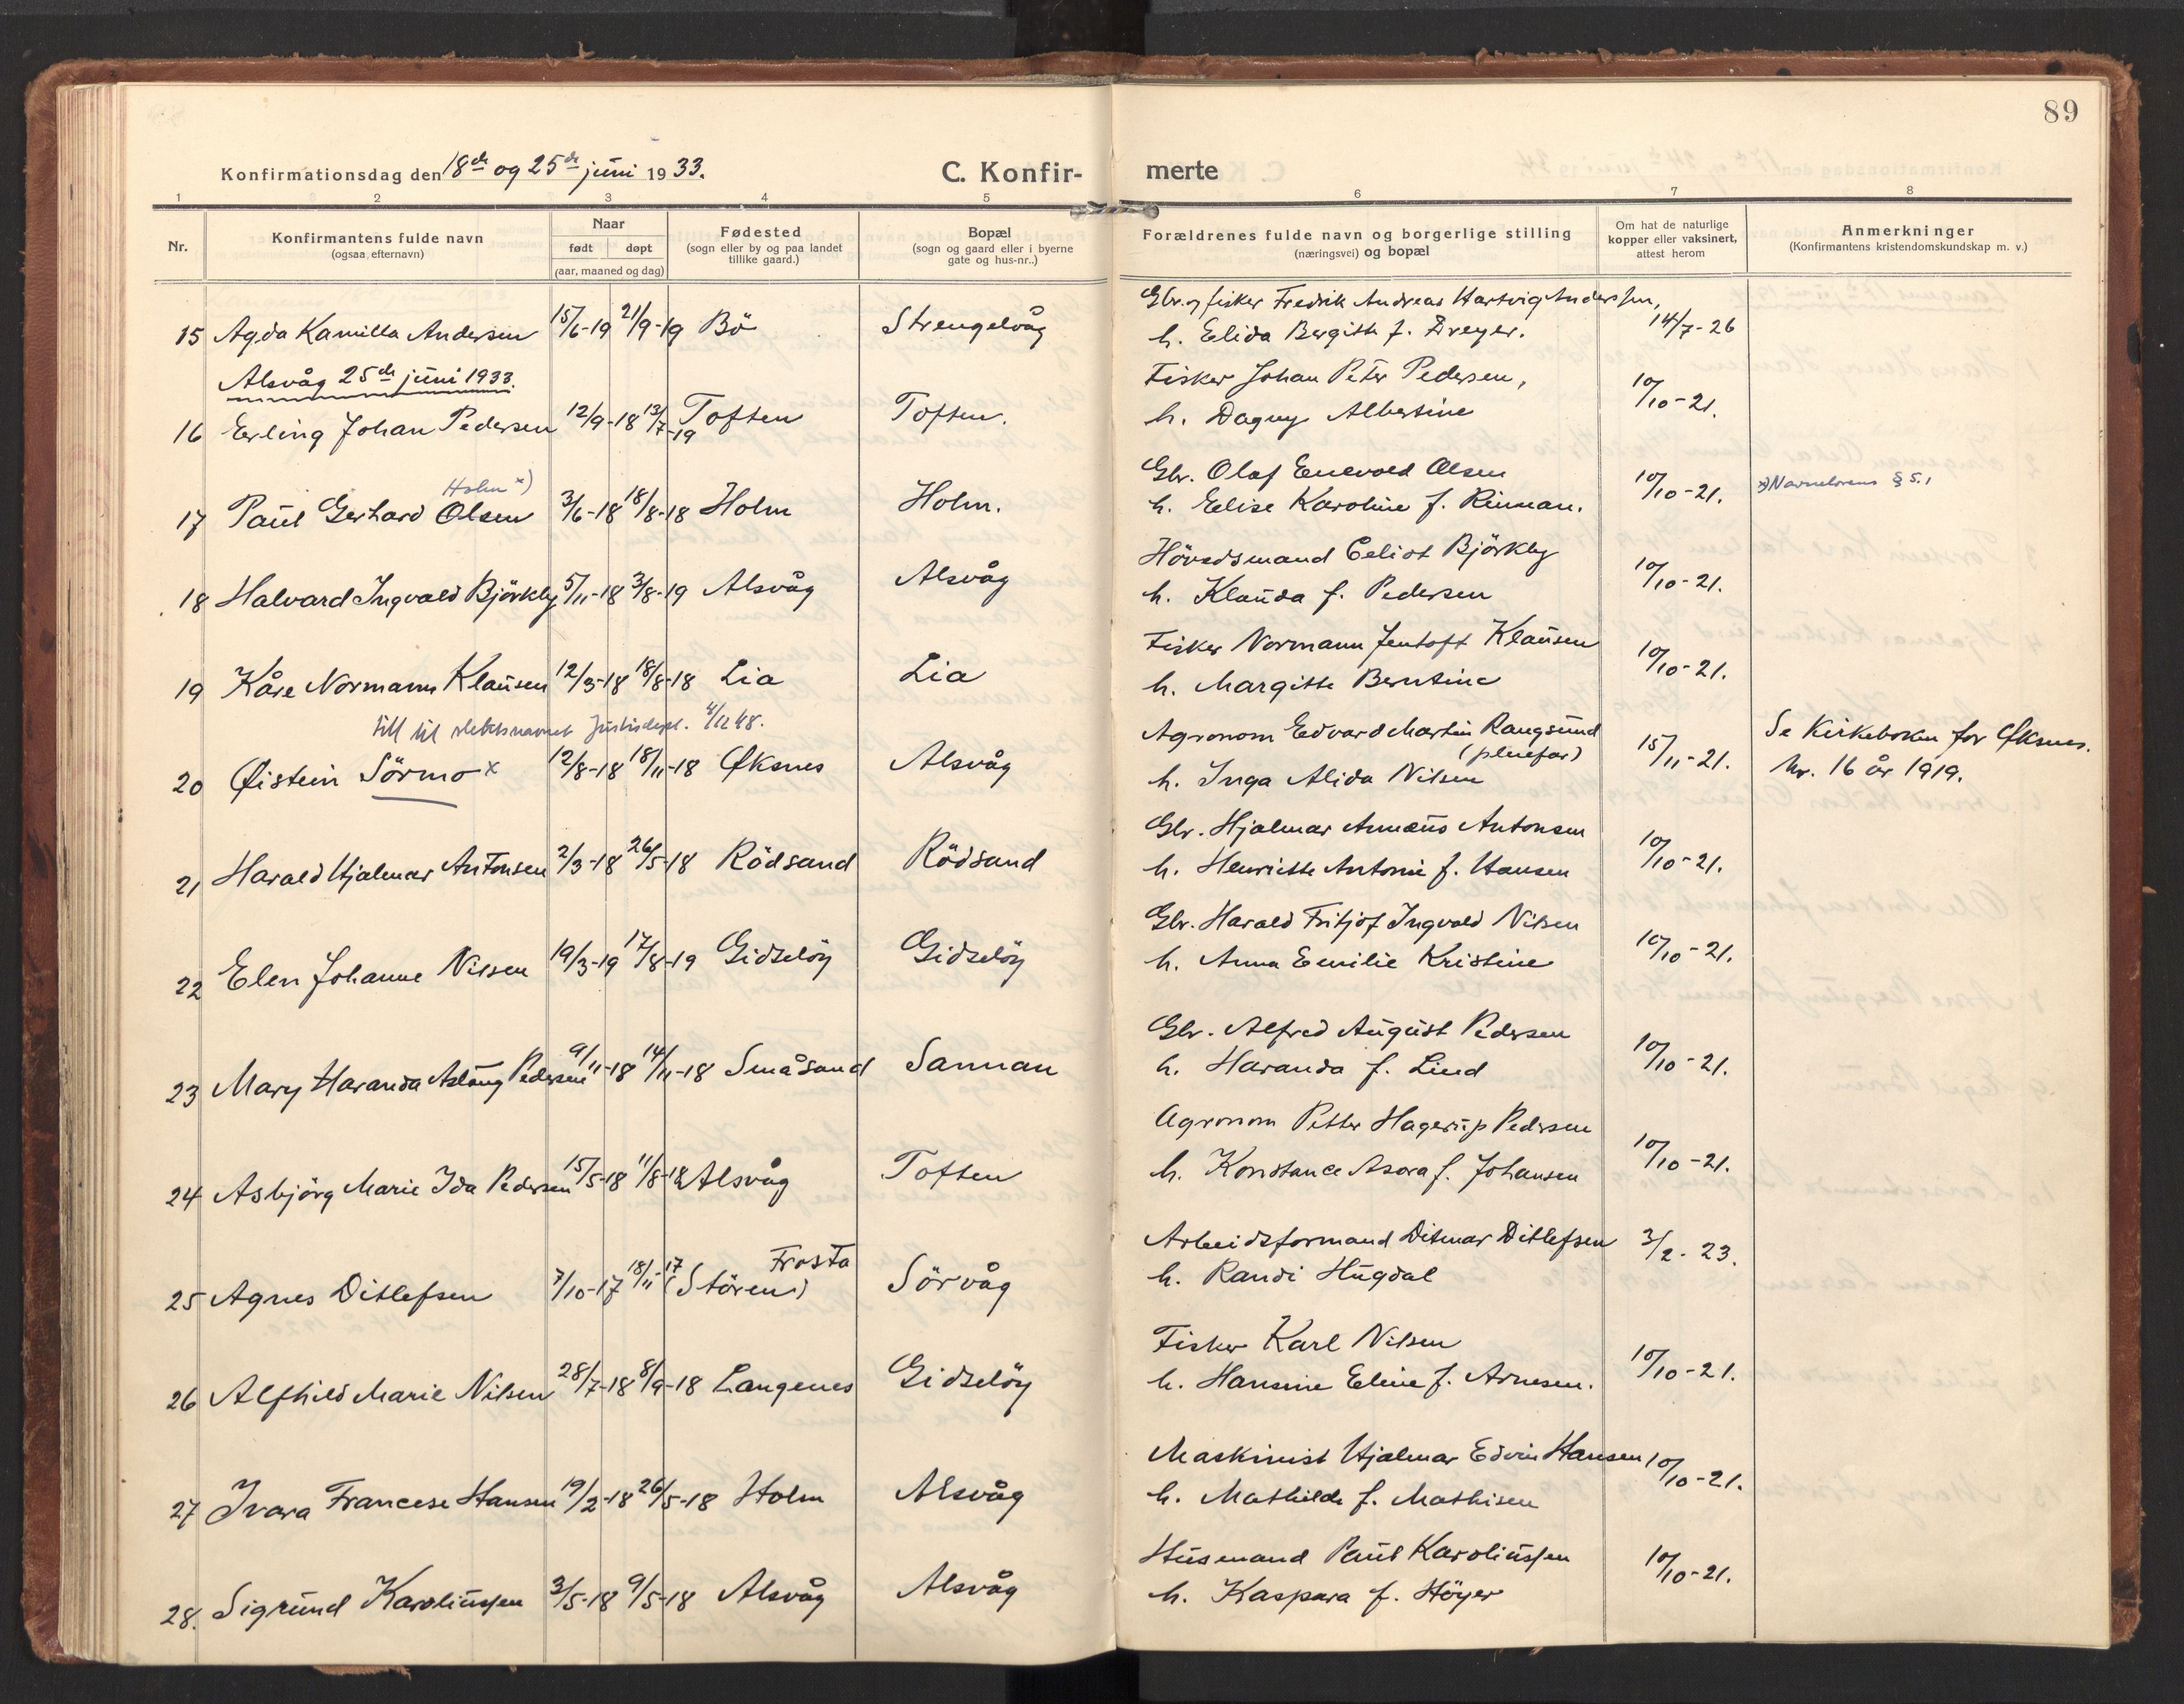 89
Konfirmationsdag den 18de og 25de juni 1933.
C. Konfir-
merte
1 2 3 4 5 6 7 8
Nr.
Konfirmantens fulde navn
(ogsaa efternavn)
Naar
født døpt
(aar, maaned og dag)
Fødested
(sogn eller by og paa landet
tillike gaard.)
Bopæl
(sogn og gaard eller i byerne
gate og hus-nr..)
Forældrenes fulde navn og borgerlige stilling
(næringsvei) og bopæl
Om hat de naturlige
kopper eller vaksinert,
attest herom
Anmerkninger
(Konfirmantens kristendomskundskap m. v.)
Gbr. og fisker Fredrik Andreas Hartvig Anderssen,
15 Agda Kamilla Andersen 15/6-19 21/9-19 Bö Strengelvåg h. Elida Bergith f. Dreyer. 14/7-26
Alsvåg 25de juni 1933.
Fisker Johan Peter Pedersen,
16 Erling Johan Pedersen 12/9-18 13/7-19 Toften Toften. h. Dagny Albertine 10/10-21.
Holm x)
Gbr. Olaf Enevold Olsen
17 Paul Gerhard Olsen 3/6-18 18/8-18 Holm Holm. h. Elise Karoline f. Rinman. 10/10-21. x) Navnelovens § 5.
Hövedsmand Eeliot Björkly
18 Halvard Ingvald Björkly 5/11-18 3/8-19 Alsvåg Alsvåg h. Klauda f. Pedersen 10/10-21.
Fisker Normann Jentoft Klausen
19 Kåre Normann Klausen 12/3-18 18/8-18 Lia Lia h. Margitte Berntine 10/10-21.
till til slektsnavnet Justisdept. 4/12 48.
Agronom Edvard Martin Rangsund
(pleiefar)
20 Øistein Sörmo x 12/8-18 18/11-18 Øksnes Alsvåg h. Inga Alida Nilsen 15/11-21. Se Kirkeboken for Øksnes.
Nr. 16 år 1919.
Gbr. Hjalmar Annæus Antonsen
21 Harald Hjalmar Antonsen 2/3-18 26/5-18 Rödsand Rödsand h. Henriette Antonie f. Hansen 10/10-21.
Gbr. Harald Fritjof Ingvald Nilsen
22 Elen Johanne Nilsen 19/3-19 17/8-19 Gidslöy Gidslöy h. Anna Emilie Kristine 10/10-21.
Gbr. Alfred August Pedersen
23 Mary Haranda Aslaug Pedersen 9/11-18 14/11-18 Småsand Sannan h. Haranda f. Lind 10/10-21.
Agronom Petter Hagerup Pedersen
24 Asbjörg Marie Ida Pedersen 15/5-18 11/8-18 Alsvåg Toften h. Konstance Asora f. Johansen 10/10-21.
Arbeidsformand Ditmar Ditlefsen
Frosta
25 Agnes Ditlefsen 7/10-17 18/11-17 (Stören) Sörvåg h. Randi Hugdal 3/2-23.
Fisker Karl Nilsen
26 Alfhild Marie Nilsen 28/7-18 8/9-18 Langenes Gidslöy h. Hansine Eline f. Arnesen. 10/10-21.
Maskinist Hjalmar Edvin Hansen
27 Ivara Francese Hansen 19/2-18 26/5-18 Holm Alsvåg h. Mathilde f. Mathisen 10/10-21.
Husmand Paul Karoliussen
28. Sigrund Karoliussen 3/5-18 9/5-18 Alsvåg Alsvåg h. Kaspara f. Höyer 10/10-21.